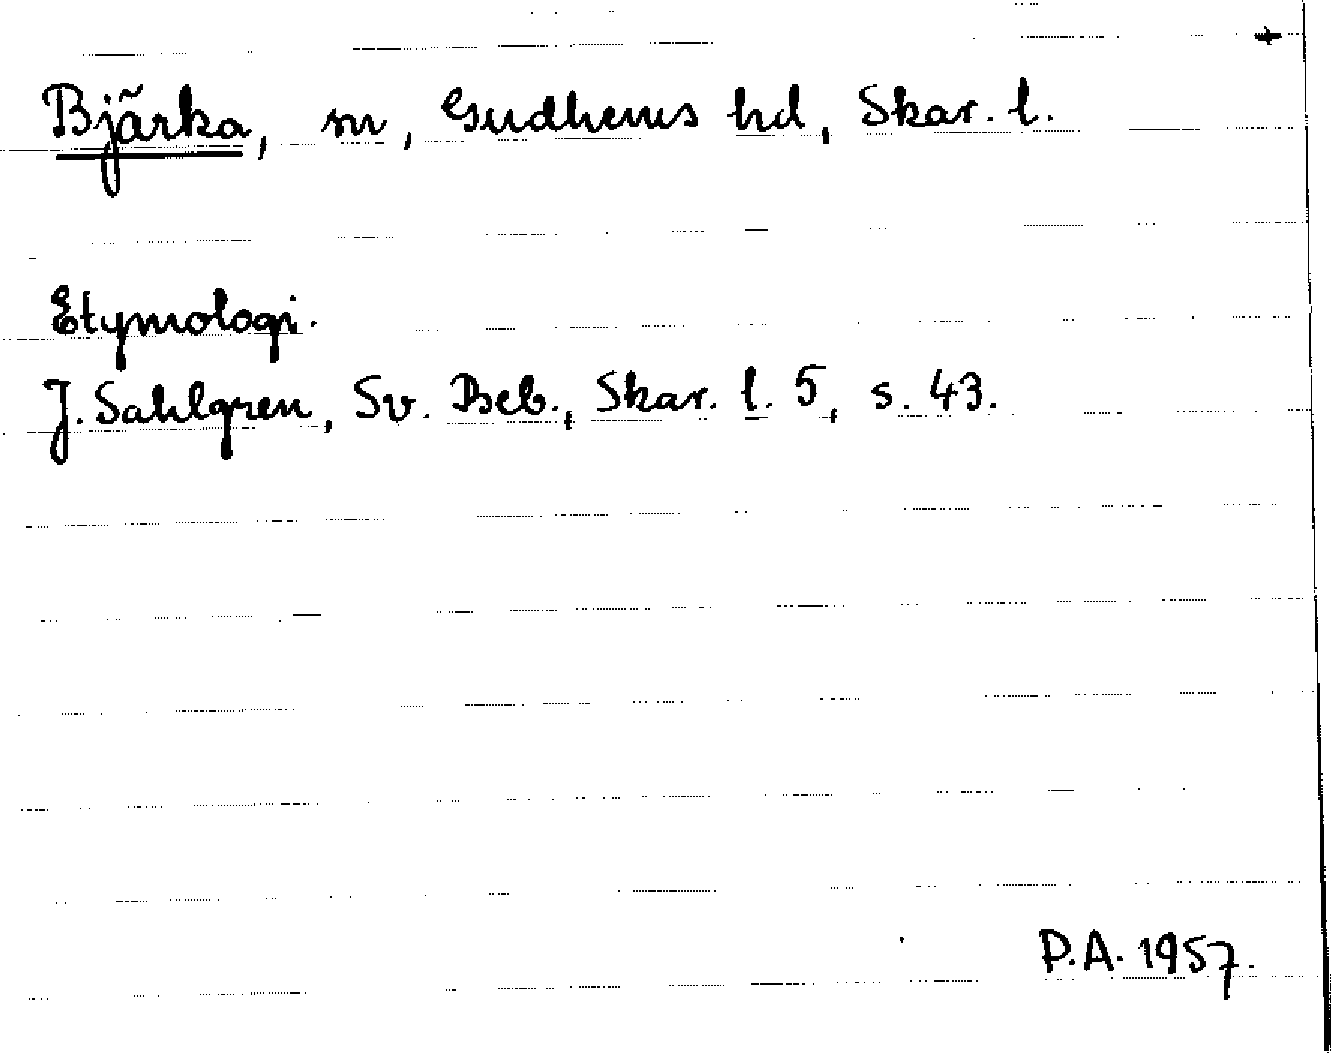 Bjärka, sn, Gudhems hd, Skar. l.
Etymologi.
J. Sahlgren, Sv. Beb., Skar. l. 5, s. 43.
P.A. 1957.